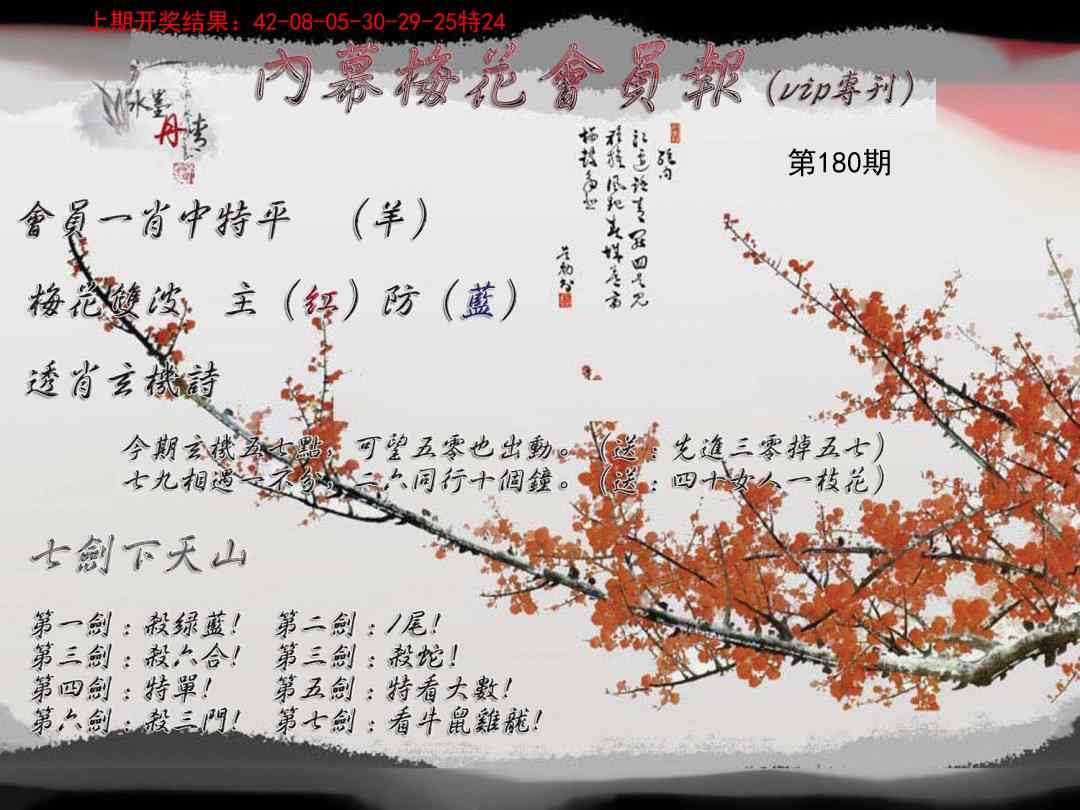 上期开奖结果：42-08-05-30-29-25特24
內幕梅花會員報（vip專刊）
水墨
丹青
第180期
會員一肖中特平 （羊）
梅花雙波 主（紅）防（藍）
透肖玄機詩
今期玄機五七點，可望五零也出動。（送：先進三零掉五七）
七九相遇一不分，二六同行十個鐘。（送：四十女人一枝花）
七劍下天山
第一劍：殺綠藍！ 第二劍：1尾！
第三劍：殺六合！ 第三劍：殺蛇！
第四劍：特單！ 第五劍：特看大數！
第六劍：殺三門！ 第七劍：看牛鼠雞龍！